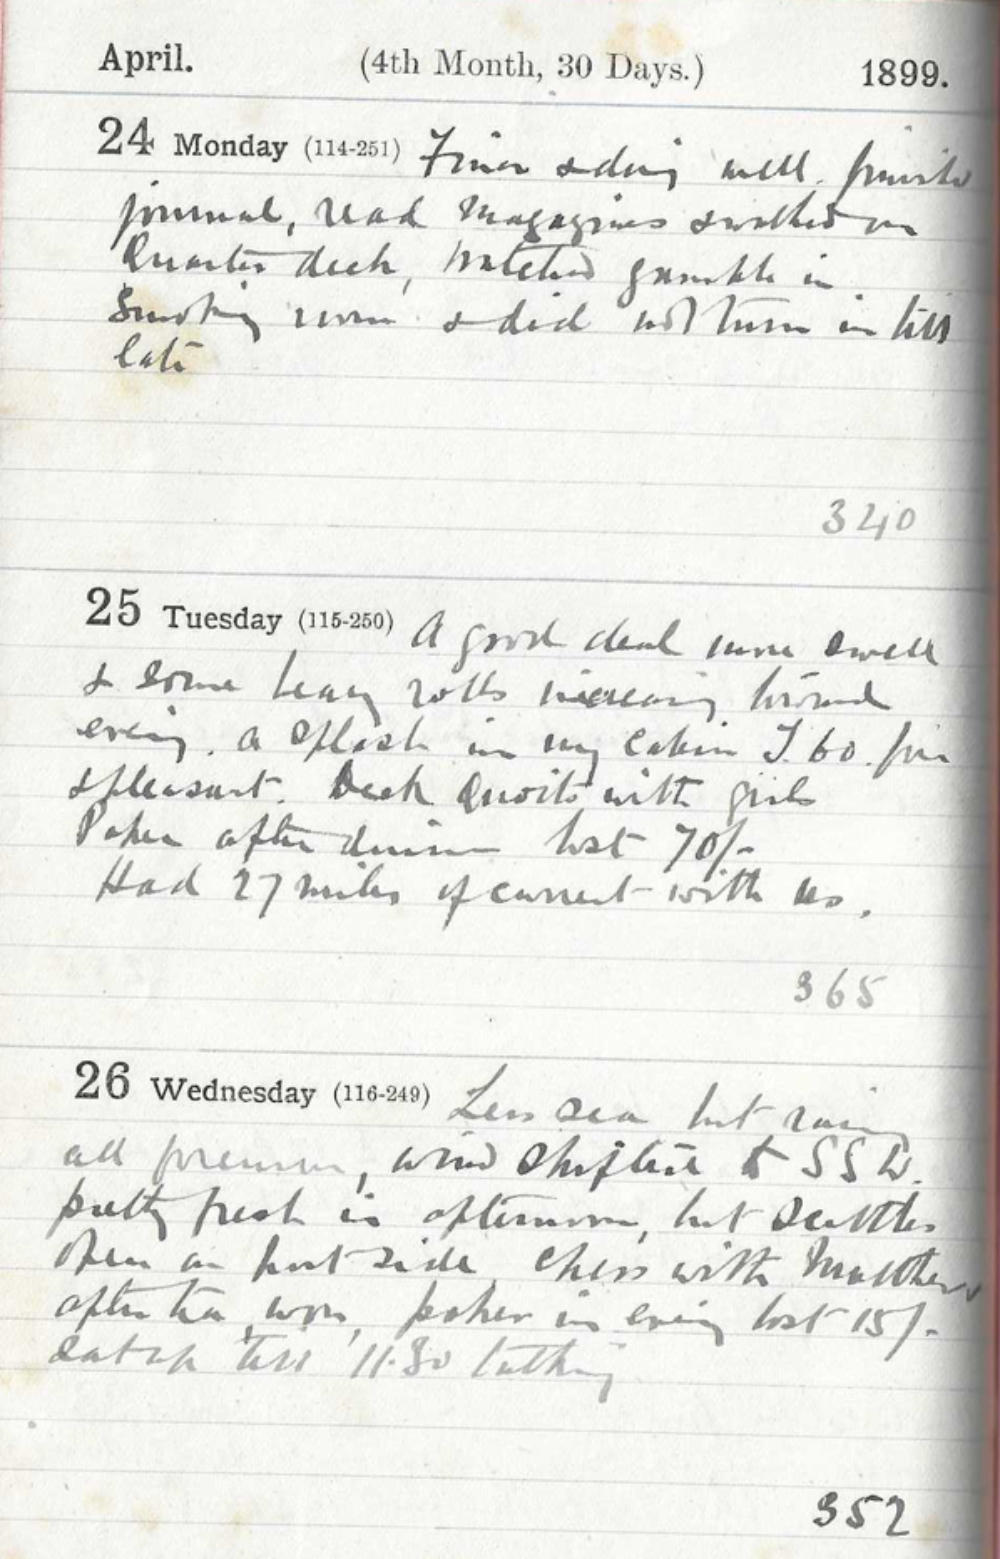 April. (4th Month, 30 Days.) 1899.
24 Monday (114-251) Finer & doing well.
journal, read Magazines & walked on
Quarter deck, watched gamble in
Smoking room & did not turn in till
late
340
25 Tuesday (115-250) A good deal more swell
& some heavy rolls increasing toward
evening. a splash in my cabin T. 60. fine
& pleasant. Deck Quoits with girls
Poker after dinner lost 70/-
Had 27 miles of current with us.
365
26 Wednesday (116-249) Less sea but rainy
all forenoon, wind shifted to SSW.
pretty fresh in afternoon, but scuttles
open on port side Chess with Matthews
after tea, won, poker in evening lost 15/-
sat up till 11.30 talking
352